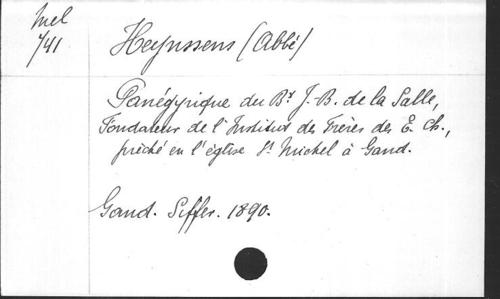 Mel
741
Heynssens (Abbé)
Panégyrique du Bx J.-B. de la Salle,
Fondateur de l'Institut des Frères des E. Ch.,
prêché en l'église St Michel à Gand.
Gand. Siffer. 1890.